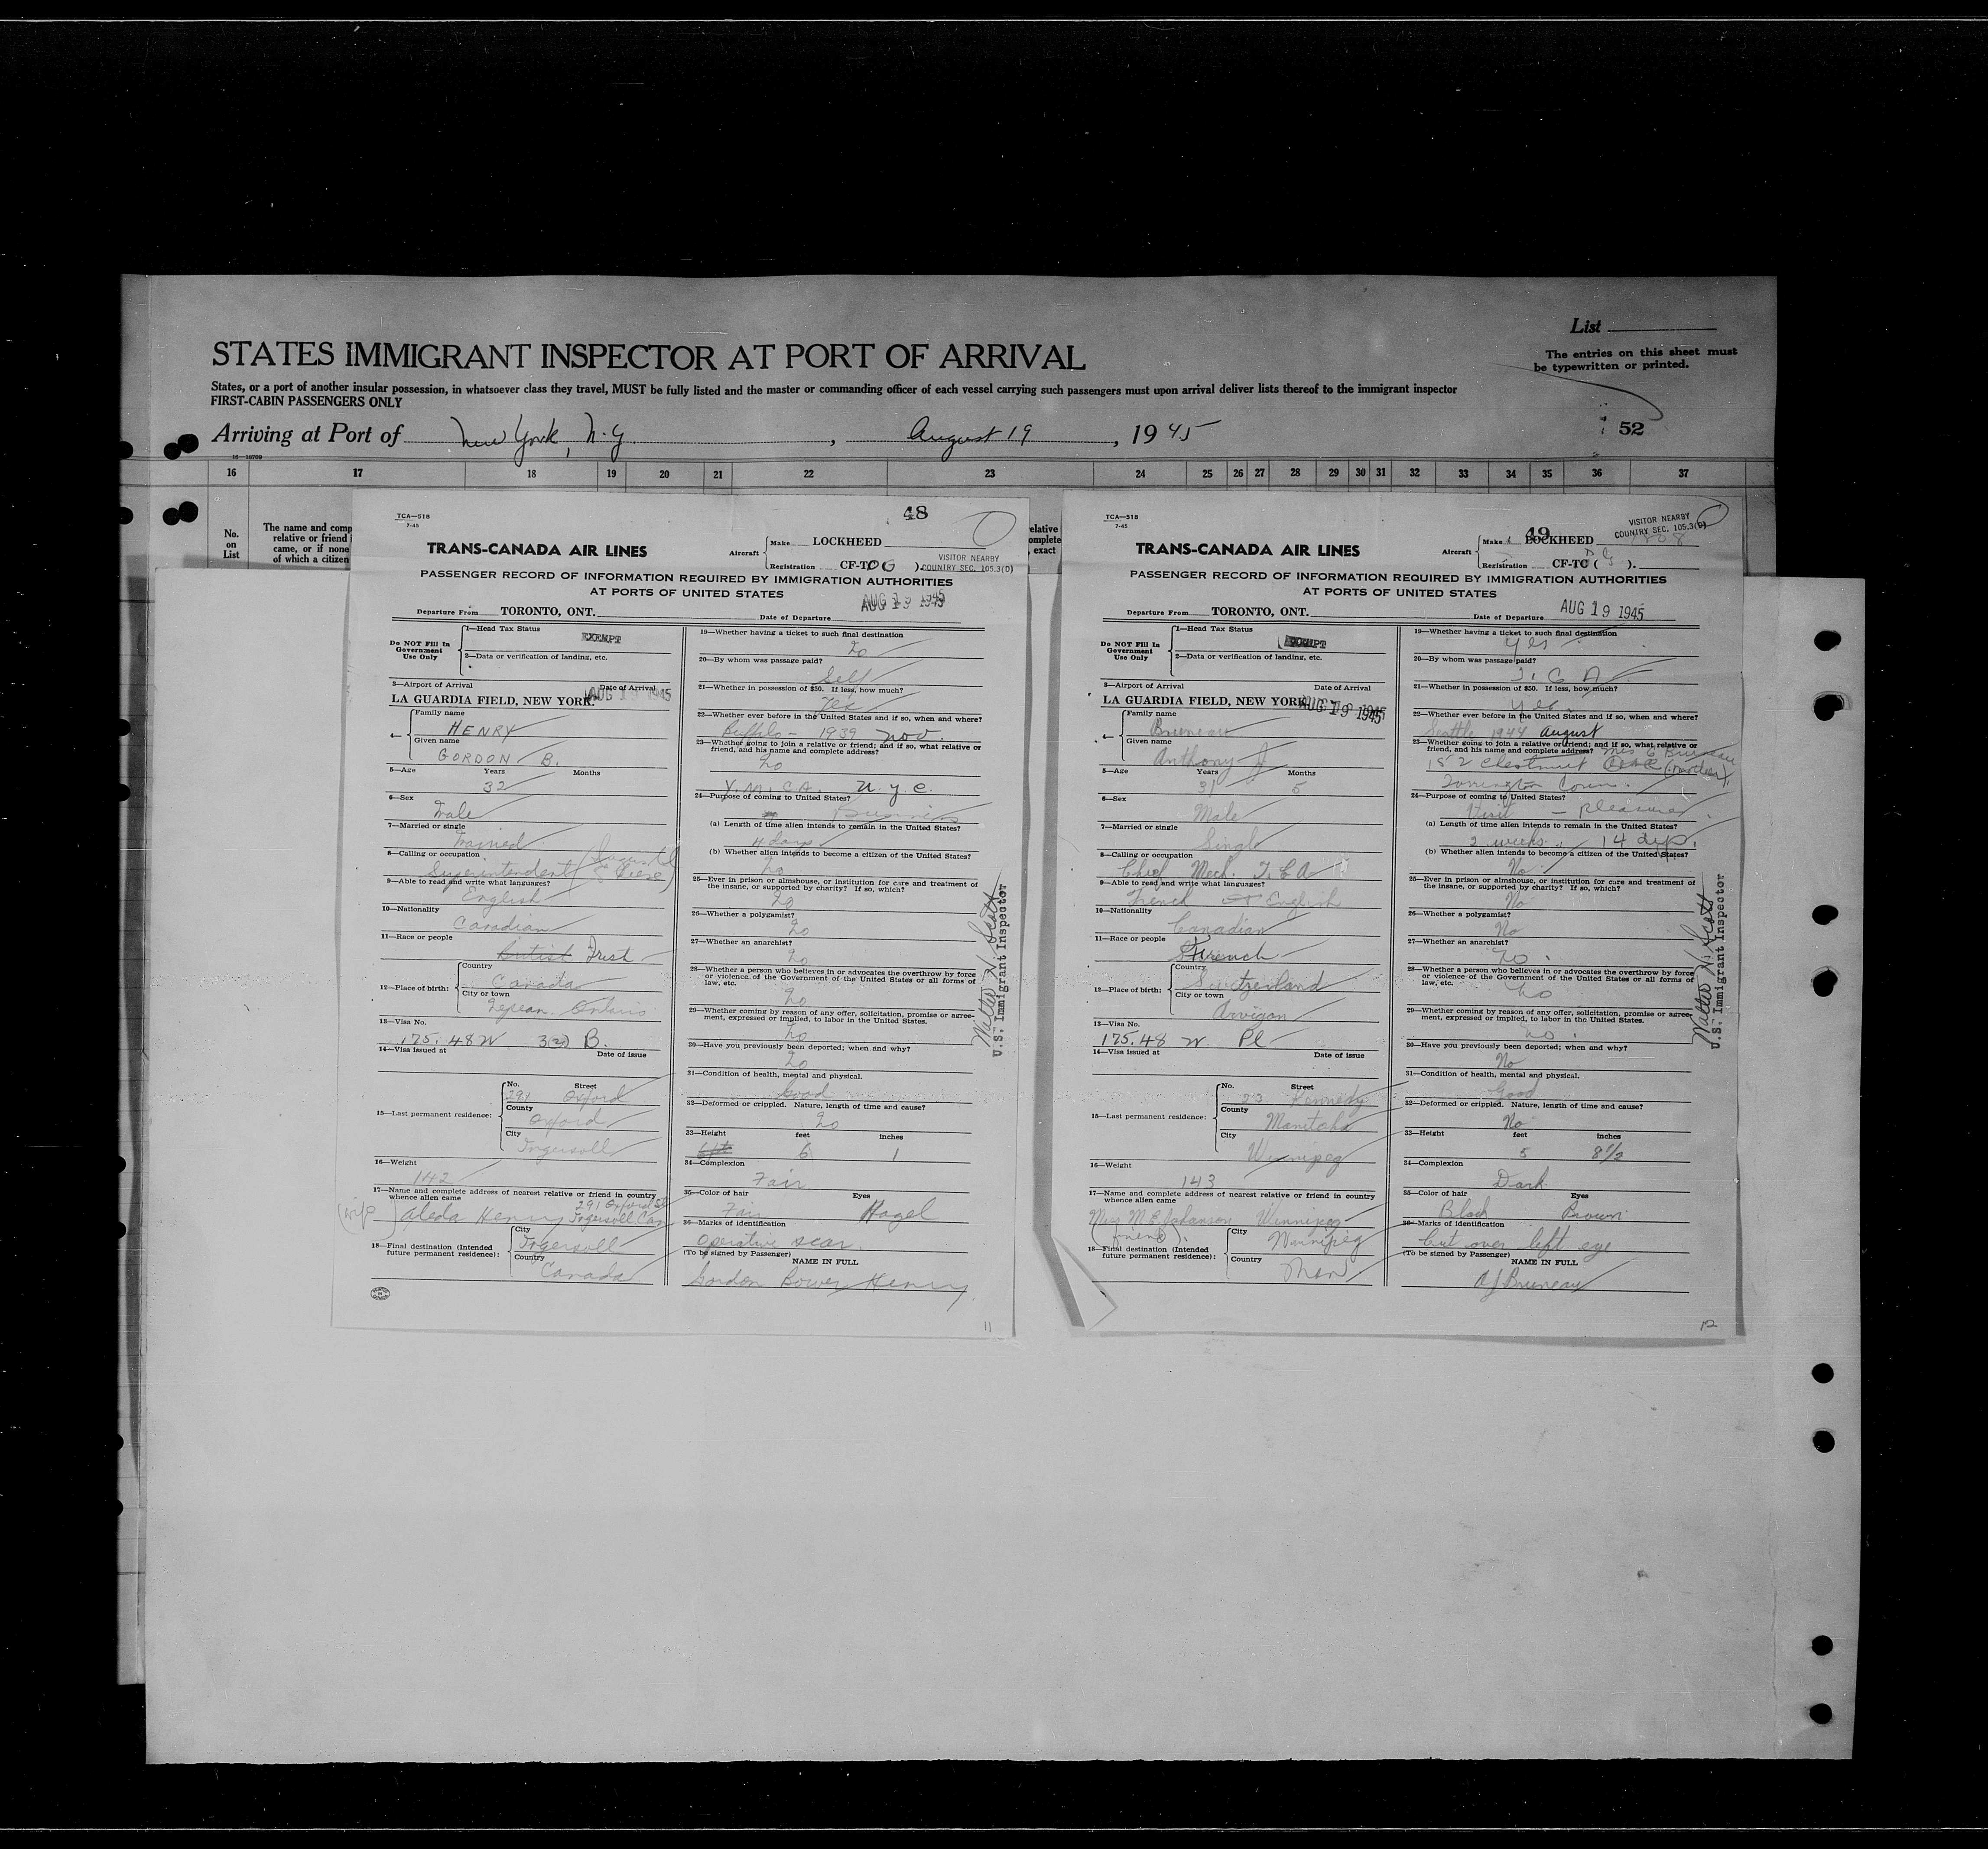 List
STATES IMMIGRANT INSPECTOR AT PORT OF ARRIVAL
The entries on this sheet must
be typewritten or printed.
States, or a port of another insular possession, in whatsoever class they travel, MUST be fully listed and the master or commanding officer of each vessel carrying such passengers must upon arrival deliver lists thereof to the immigrant inspector
FIRST-CABIN PASSENGERS ONLY
Arriving at Port of New York, N.Y. , August 19 , 1945
52
16—10709
16 17 18 19 20 21 22 23 24 25 26 27 28 29 30 31 32 33 34 35 36 37
No.
on
List
The name and comp
relative or friend
came, or if none
of which a citizen
elative
omplete
, exact
TCA—518
7-45
48
TRANS-CANADA AIR LINES
Aircraft
Make LOCKHEED
Registration CF-TC
VISITOR NEARBY
COUNTRY SEC. 105.3(D)
PASSENGER RECORD OF INFORMATION REQUIRED BY IMMIGRATION AUTHORITIES
AT PORTS OF UNITED STATES
AUG 19 1945
Departure From TORONTO, ONT. Date of Departure
Do NOT Fill In
Government
Use Only
1—Head Tax Status
EXEMPT
2—Data or verification of landing, etc.
3—Airport of Arrival Date of Arrival
LA GUARDIA FIELD, NEW YORK. AUG 19 1945
4—
Family name
HENRY
Given name
GORDON B.
5—Age Years Months
32
6—Sex
Male
7—Married or single
Married
8—Calling or occupation
Superintendent
9—Able to read and write what languages?
English
10—Nationality
Canadian
11—Race or people
British Irish
12—Place of birth:
Country
Canada
City or town
Nepean Ontario
13—Visa No.
175.48W 3(2) B.
14—Visa issued at Date of issue
15—Last permanent residence:
No. Street
291 Oxford
County
Oxford
City
Ingersoll
16—Weight
142
17—Name and complete address of nearest relative or friend in country
whence alien came
291 Oxford St
(wife) Aleda Henry Ingersoll Can
18—Final destination (Intended
future permanent residence):
City
Ingersoll
Country
Canada
19—Whether having a ticket to such final destination
No
20—By whom was passage paid?
Self
21—Whether in possession of $50. If less, how much?
Yes
22—Whether ever before in the United States and if so, when and where?
Buffalo - 1939 Nov.
23—Whether going to join a relative or friend; and if so, what relative or
friend, and his name and complete address?
No
Y.M.C.A. N.Y.C.
24—Purpose of coming to United States?
Business
(a) Length of time alien intends to remain in the United States?
4 days
(b) Whether alien intends to become a citizen of the United States?
No
25—Ever in prison or almshouse, or institution for care and treatment of
the insane, or supported by charity? If so, which?
No
26—Whether a polygamist?
No
27—Whether an anarchist?
No
28—Whether a person who believes in or advocates the overthrow by force
or violence of the Government of the United States or all forms of
law, etc.
No
29—Whether coming by reason of any offer, solicitation, promise or agree-
ment, expressed or implied, to labor in the United States.
No
30—Have you previously been deported; when and why?
No
31—Condition of health, mental and physical.
Good
32—Deformed or crippled. Nature, length of time and cause?
No
33—Height feet inches
6 1
34—Complexion
Fair
35—Color of hair Eyes
Fair Hazel
36—Marks of identification
Operative scar
(To be signed by Passenger)
NAME IN FULL
Gordon Bower Henry
Walter N. Scott
U.S. Immigrant Inspector
11
TCA—518
7-45
49
VISITOR NEARBY
COUNTRY SEC. 105.3(D)
TRANS-CANADA AIR LINES
Aircraft
Make LOCKHEED
Registration CF-TC ( ).
PASSENGER RECORD OF INFORMATION REQUIRED BY IMMIGRATION AUTHORITIES
AT PORTS OF UNITED STATES
Departure From TORONTO, ONT. Date of Departure AUG 19 1945
Do NOT Fill In
Government
Use Only
1—Head Tax Status
EXEMPT
2—Data or verification of landing, etc.
3—Airport of Arrival Date of Arrival
LA GUARDIA FIELD, NEW YORK AUG 19 1945
4—
Family name
Bruneau
Given name
Anthony J
5—Age Years Months
31 5
6—Sex
Male
7—Married or single
Single
8—Calling or occupation
Chief Mech. T.C.A.
9—Able to read and write what languages?
French & English
10—Nationality
Canadian
11—Race or people
French
12—Place of birth:
Country
Switzerland
City or town
Avvigon
13—Visa No.
175.48 W. Pl
14—Visa issued at Date of issue
15—Last permanent residence:
No. Street
23 Kennedy
County
Manitoba
City
Winnipeg
16—Weight
143
17—Name and complete address of nearest relative or friend in country
whence alien came
Miss M.E. Johanson Winnipeg
(friend)
18—Final destination (Intended
future permanent residence):
City
Winnipeg
Country
Man
19—Whether having a ticket to such final destination
Yes
20—By whom was passage paid?
T.C.A.
21—Whether in possession of $50. If less, how much?
Yes
22—Whether ever before in the United States and if so, when and where?
Seattle 1944 August
23—Whether going to join a relative or friend; and if so, what relative or
friend, and his name and complete address? Mrs G Bruneau
152 Chestnut (mother)
Torrington Conn.
24—Purpose of coming to United States?
Visit - pleasure
(a) Length of time alien intends to remain in the United States?
2 weeks 14 days.
(b) Whether alien intends to become a citizen of the United States?
No
25—Ever in prison or almshouse, or institution for care and treatment of
the insane, or supported by charity? If so, which?
No
26—Whether a polygamist?
No
27—Whether an anarchist?
No
28—Whether a person who believes in or advocates the overthrow by force
or violence of the Government of the United States or all forms of
law, etc.
No
29—Whether coming by reason of any offer, solicitation, promise or agree-
ment, expressed or implied, to labor in the United States.
No
30—Have you previously been deported; when and why?
No
31—Condition of health, mental and physical.
Good
32—Deformed or crippled. Nature, length of time and cause?
No
33—Height feet inches
5 8½
34—Complexion
Dark
35—Color of hair Eyes
Black Brown
36—Marks of identification
Cut over left eye
(To be signed by Passenger)
NAME IN FULL
A J Bruneau
Walter N. Scott
U.S. Immigrant Inspector
12